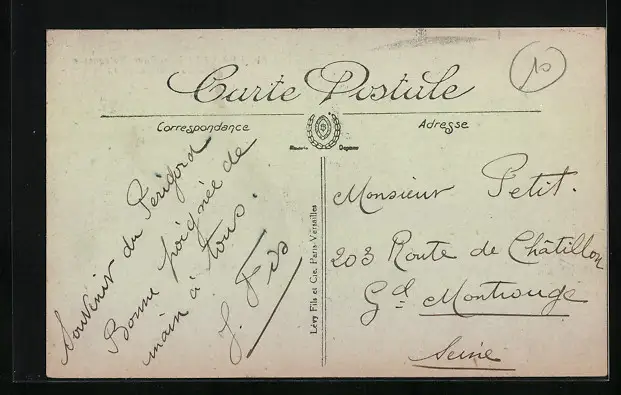 10
Carte Postale
Correspondance
Adresse
Souvenir du Périgord
Bonne poignée de
main à tous.
Lévy Fils et Cie, Paris-Versailles
Monsieur Petit.
203 Route de Châtillon
Gd Montrouge
Seine